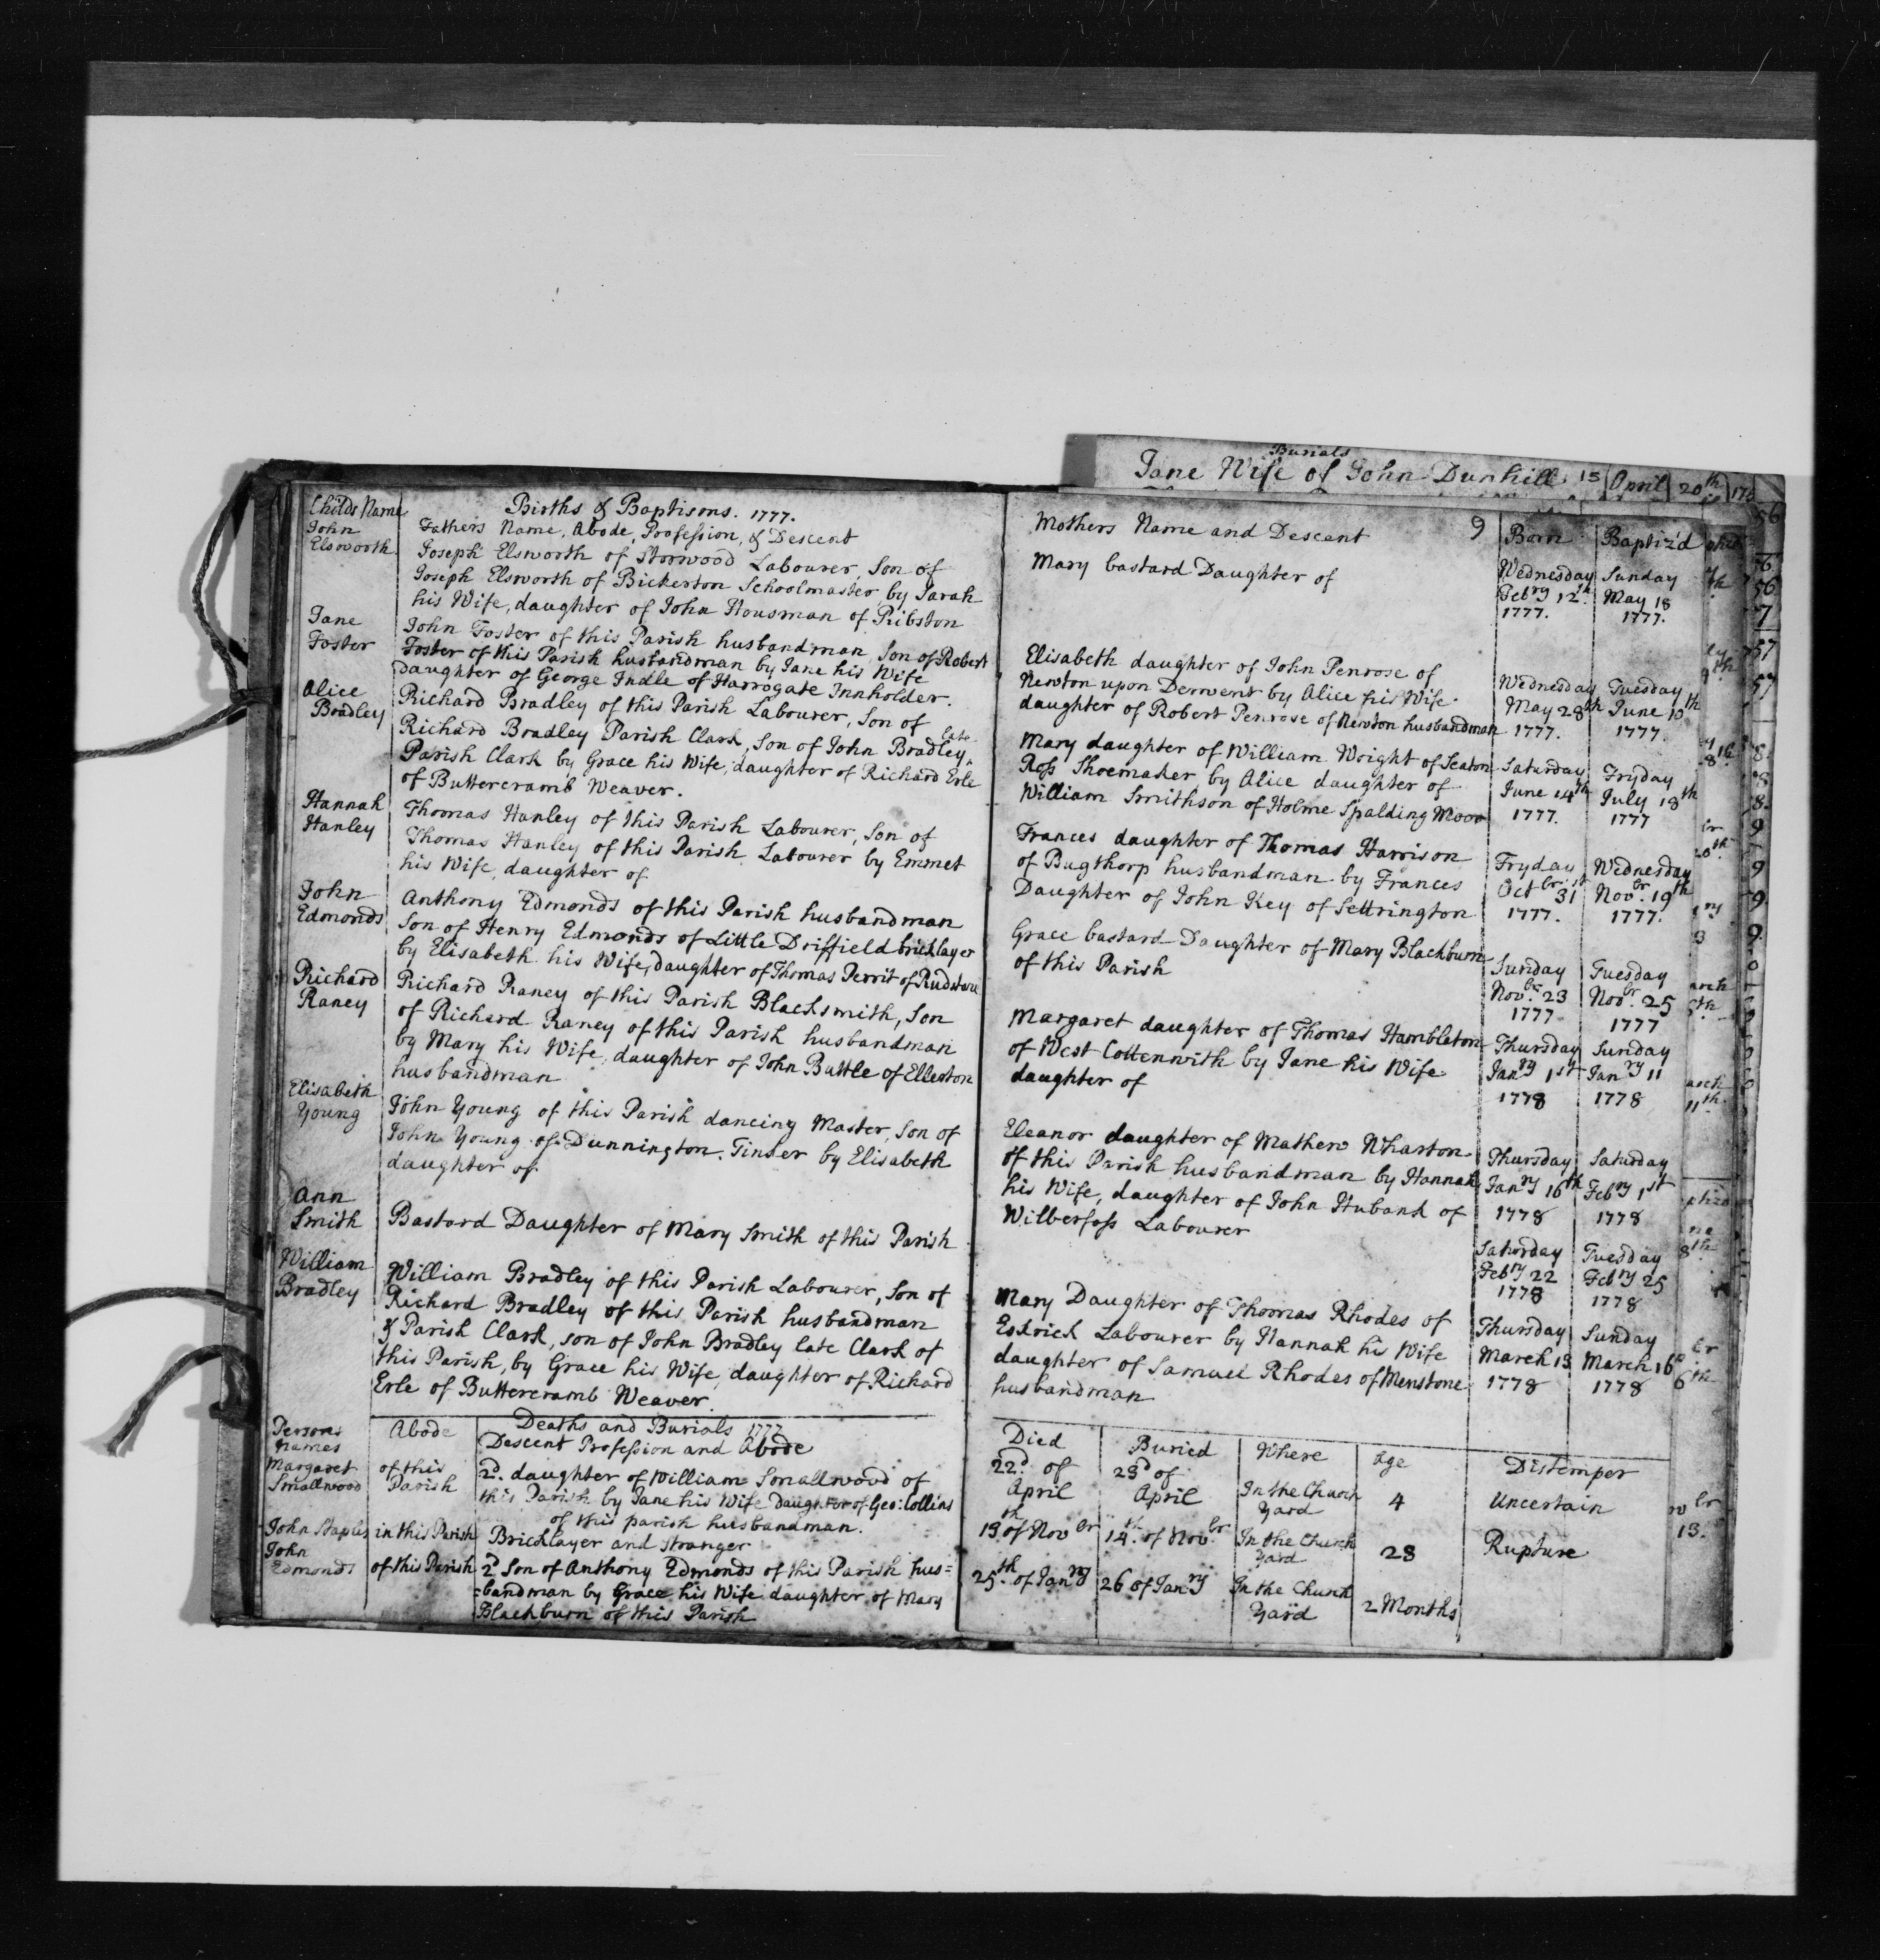 Burials
Jane Wife of John Dunhill 15 April 20th
Births & Baptisms. 1777.
Childs Name
Fathers Name, Abode, Profession, & Descent
John
Elsworth
Joseph Elsworth of Storwood Labourer, Son of
Joseph Elsworth of Bickerton Schoolmaster by Sarah
his Wife, daughter of John Housman of Ribston
Jane
Foster
John Foster of this Parish husbandman Son of Robert
Foster of this Parish husbandman by Jane his Wife
daughter of George Indle of Harrogate Innholder.
Alice
Bradley
Richard Bradley of this Parish Labourer, Son of
Richard Bradley Parish Clark, Son of John Bradley late
Parish Clark by Grace his Wife, daughter of Richard Erle
of Buttercramb Weaver.
Hannah
Hanley
Thomas Hanley of this Parish Labourer, Son of
Thomas Hanley of this Parish Labourer by Emmet
his Wife, daughter of
John
Edmonds
Anthony Edmonds of this Parish husbandman
Son of Henry Edmonds of Little Driffield bricklayer
by Elisabeth his Wife, daughter of Thomas Perrit of
Richard
Raney
Richard Raney of this Parish Blacksmith, Son
of Richard Raney of this Parish husbandman
by Mary his Wife, daughter of John Buttle of Ellerton
husbandman
Elisabeth
Young
John Young of this Parish dancing Master, Son of
John Young of Dunnington. Tinker by Elisabeth
daughter of
Ann
Smith
Bastard Daughter of Mary Smith of this Parish
William
Bradley
William Bradley of this Parish Labourer, Son of
Richard Bradley of this Parish husbandman
& Parish Clark, son of John Bradley late Clark of
this Parish, by Grace his Wife, daughter of Richard
Erle of Buttercramb Weaver.
Deaths and Burials 1777
Persons
Names
Abode
Descent Profession and Abode
Margaret
Smallwood
of this
Parish
2d. daughter of William Smallwood of
this Parish by Jane his Wife Daughter of Geo: Collins
of this parish husbandman.
John Staples in this Parish Bricklayer and Stranger
John
Edmonds
of this Parish
2d Son of Anthony Edmonds of this Parish hus=
=bandman by Grace his Wife daughter of Mary
Blackburn of this Parish
Mothers Name and Descent 9 Born Baptiz'd
Mary bastard Daughter of
Wednesday Sunday
Febry 12th May 18
1777. 1777.
Elisabeth daughter of John Penrose of
Newton upon Derwent by Alice his Wife
daughter of Robert Penrose of Newton husbandman
Wednesday Tuesday
May 28th June 10th
1777. 1777.
Mary daughter of William Wright of Seaton
Ross Shoemaker by Alice daughter of
William Smithson of Holme Spalding Moor
Saturday Fryday
June 14th July 18th
1777. 1777
Frances daughter of Thomas Harrison
of Bugthorp husbandman by Frances
Daughter of John Key of Settrington
Fryday Wednesday
Octbr 31st Novbr. 19th
1777. 1777.
Grace bastard Daughter of Mary Blackburn
of this Parish
Sunday Tuesday
Novbr. 23 Novbr. 25
1777 1777
Margaret daughter of Thomas Hambleton
of West Cottenwith by Jane his Wife
daughter of
Thursday Sunday
Janry 1st Janry 11
1778 1778
Eleanor daughter of Mathew Wharton
of this Parish husbandman by Hannah
his Wife, daughter of John Hubank of
Wilberfoss Labourer
Thursday Saturday
Janry 16th Febry 1st
1778 1778
Saturday Tuesday
Febry 22 Febry 25
1778 1778
Mary Daughter of Thomas Rhodes of
Eskrick Labourer by Hannah his Wife
daughter of Samuel Rhodes of Menstone
husbandman
Thursday Sunday
March 13 March 16
1778 1778
Died Buried Where Age Distemper
22d. of
April
23d of
April
In the Church
Yard
4 Uncertain
13th of Novbr 14th. of Novbr. In the Church
Yard
28 Rupture
25th. of Janry 26 of Janry In the Church
Yard
2 Months